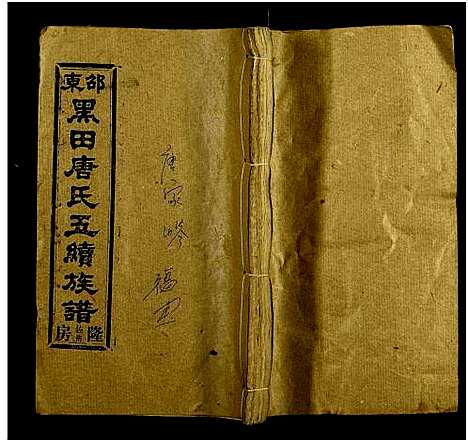 邵東
黑田唐氏五續族譜
隆房
唐家
福